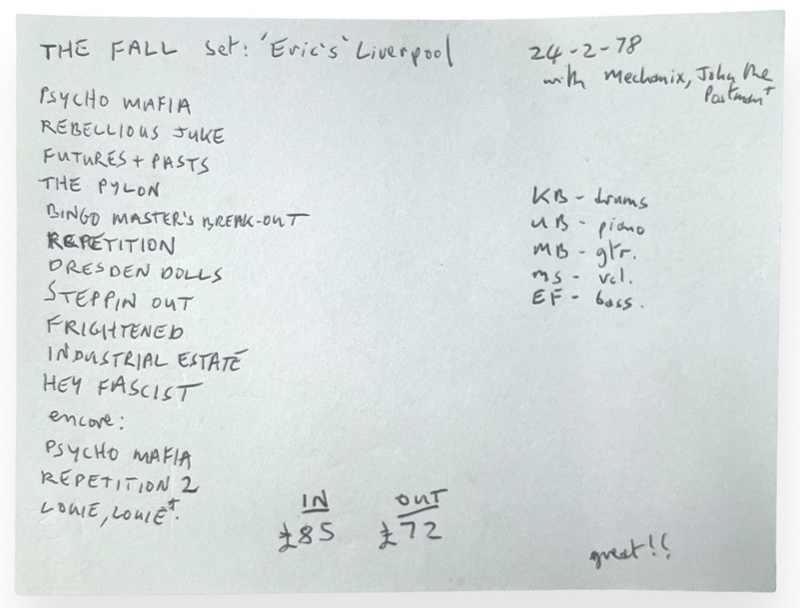 THE FALL Set: 'Eric's' Liverpool
24-2-78
with Mechanix, John the
Postman†
PSYCHO MAFIA
REBELLIOUS JUKE
FUTURES + PASTS
THE PYLON
BINGO MASTER'S BREAK-OUT
REPETITION
DRESDEN DOLLS
STEPPIN OUT
FRIGHTENED
INDUSTRIAL ESTATE
HEY FASCIST
encore:
PSYCHO MAFIA
REPETITION 2
LOUIE, LOUIE†.
KB - drums
UB - piano
MB - gtr.
MS - vcl.
EF - bass.
IN OUT
£85 £72
great!!